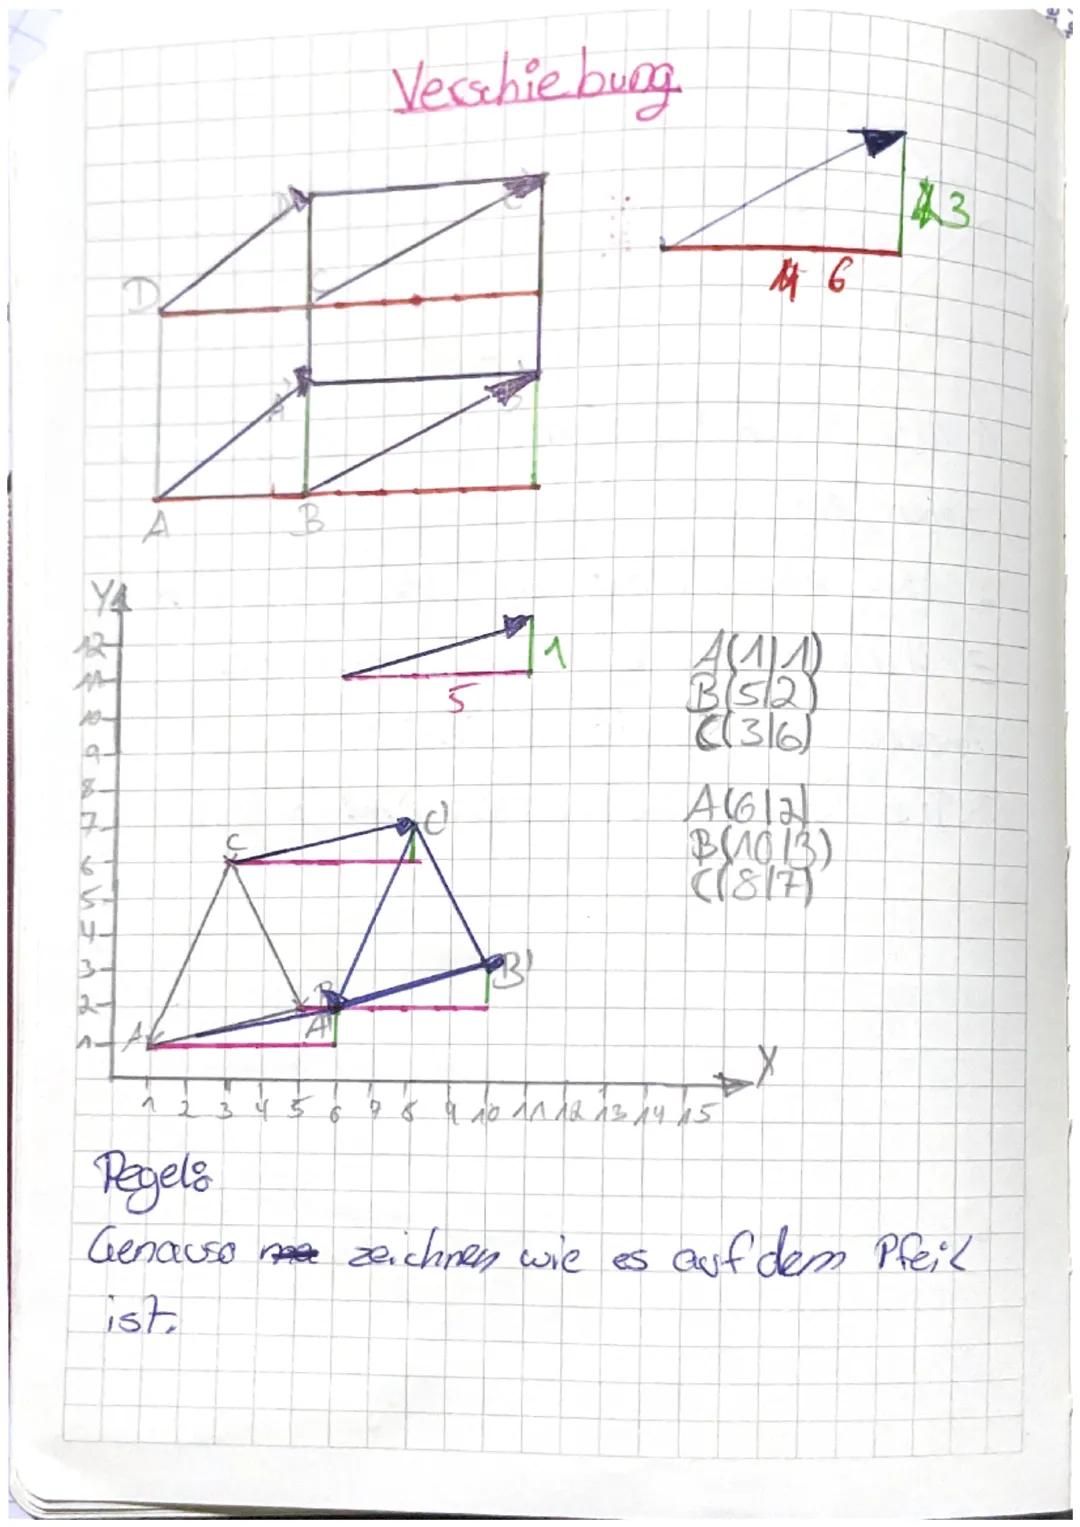 Verschiebung
3
6
D
D'
C'
C
A'
B'
A
B
Y
12
11
10
9
8
7
6
5
4
3
2
1
1
5
A(1|1)
B(5|2)
C(3|6)
A(6|2)
B(10|3)
C(8|7)
C
C'
B
B'
A
A'
X
1 2 3 4 5 6 7 8 9 10 11 12 13 14 15
Regel:
Genauso zeichnen wie es auf dem Pfeil
ist.